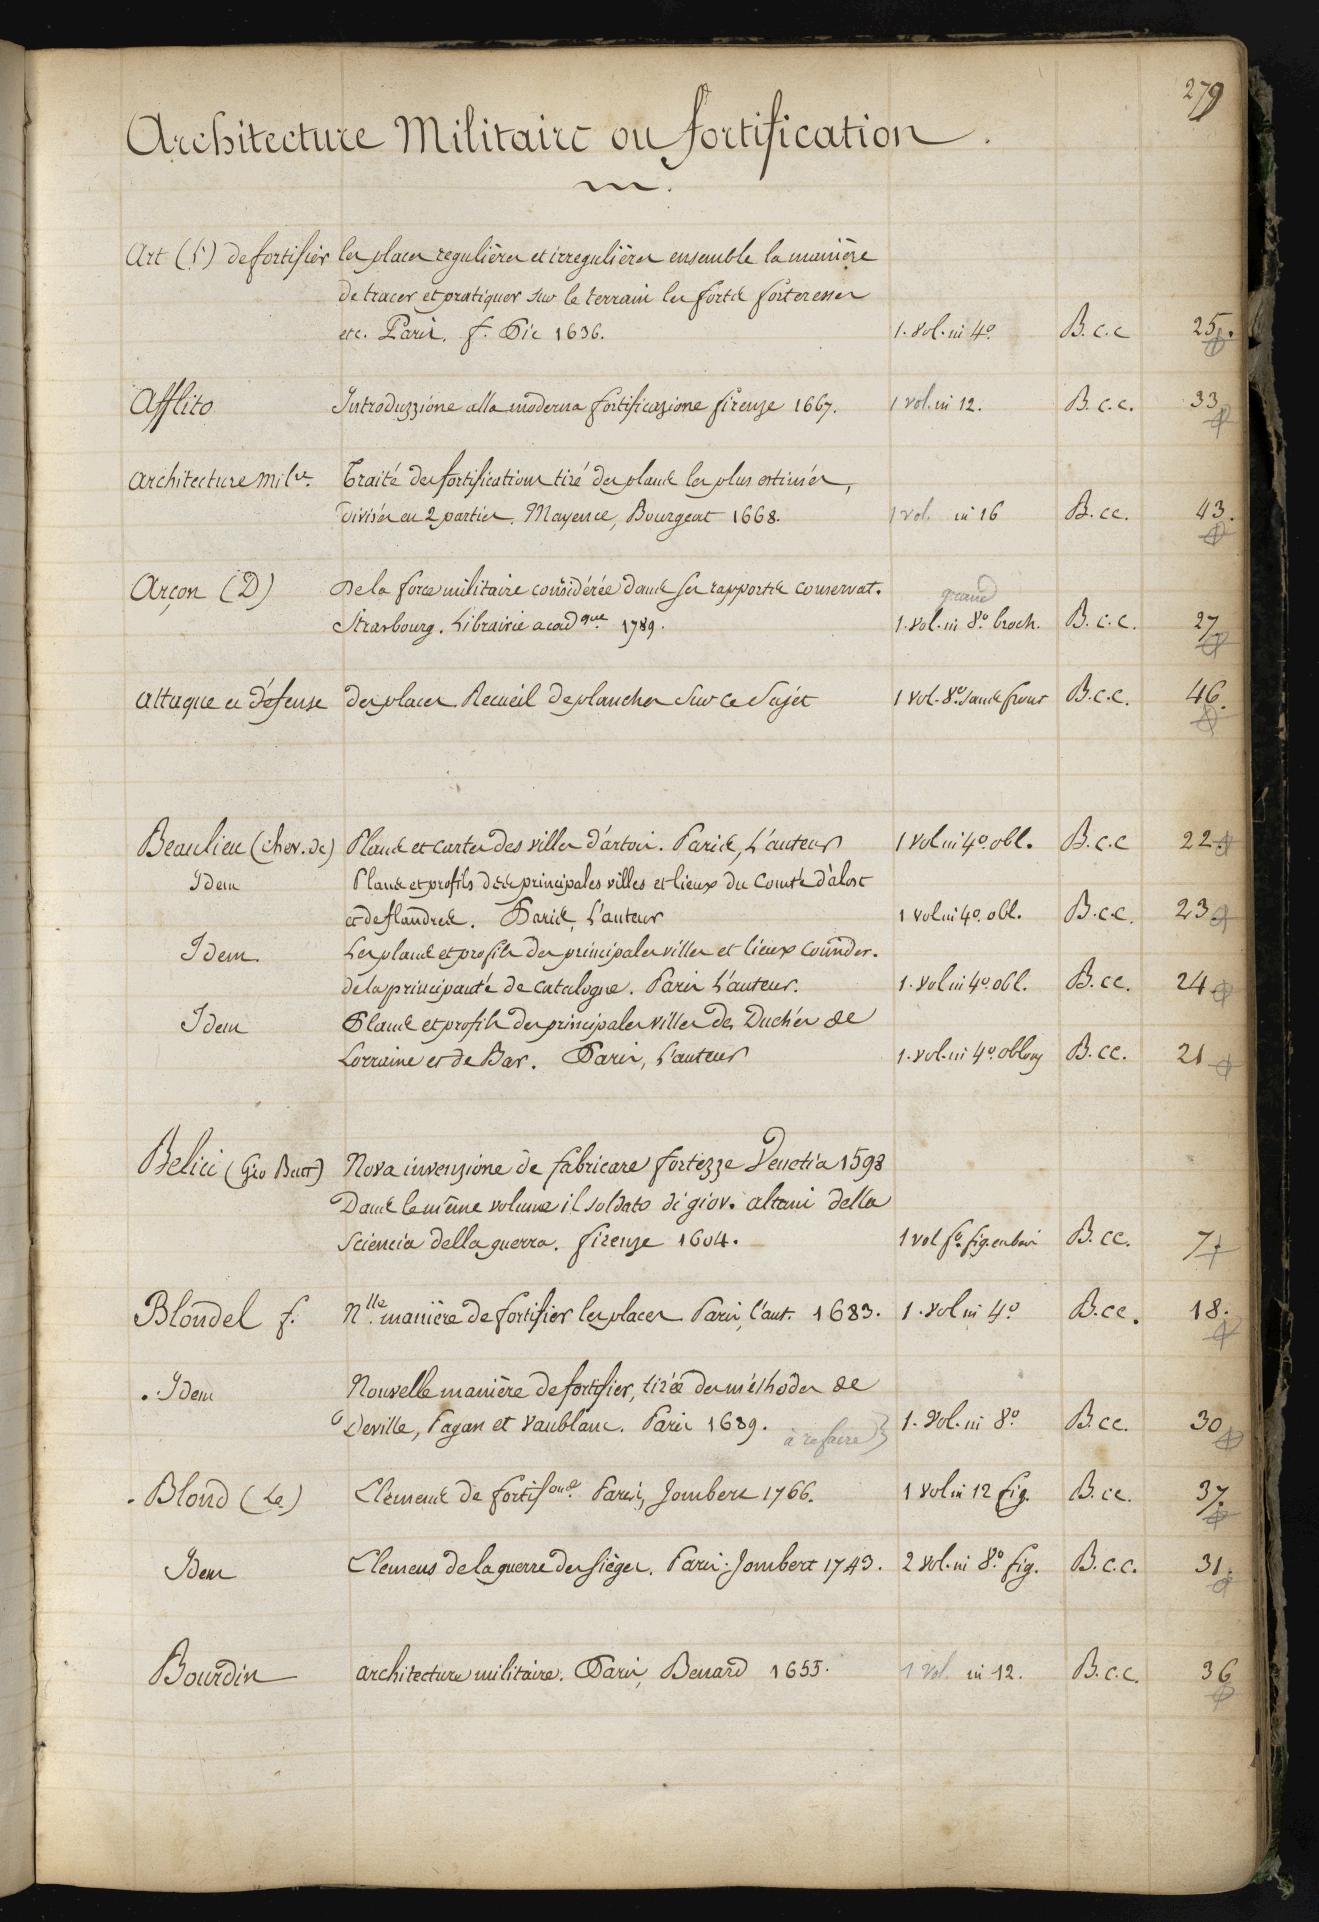 279
Architecture Militaire ou fortification.
Art (l') de fortifier les places regulières et irregulières ensemble la manière
de tracer et pratiquer sur le terrain les forts & forteresses
etc. Paris. f. Dic 1636. 1. vol. in 4º. B. c. c 25.
Afflito Introduzzione alla moderna fortificazione firenze 1667. 1 vol. in 12. B. c. c. 33
Architecture milre. Traité des fortifications tiré des plans les plus estimés,
divisés en 2 parties. Mayence, Bourgeat 1668. 1 vol. in 16 B. cc. 43.
Arçon (D) De la force militaire considérée dans ses rapports conservat.
grand
Strasbourg. Librairie acadque. 1789. 1. vol. in 8º. broch. B. c. c. 27
attaque et défense des places Recueil de planches sur ce sujet 1 vol. 8º. sans front B. c. c. 46.
Beaulieu (chev. de) Plans et cartes des villes d'artois. Paris, L'auteur 1 vol in 4º. obl. B. c. c 22.
Idem Plans et profils des principales villes et lieux du Comté d'alost
et de flandres. Paris, L'auteur 1 vol in 4º. obl. B. c. c. 23
Idem Les plans et profils des principales villes et lieux consider.
de la principauté de catalogne. Paris L'auteur. 1. vol in 4º. obl. B. cc. 24
Idem Plans et profils des principales villes des Duchés de
Lorraine et de Bar. Paris, L'auteur 1. vol. in 4º. oblong B. cc. 21
Belici (Gio Batt) Nova invenzione de fabricare fortezze Venetia 1598
Dans le même volume il soldato di giov. altoni della
sciencia della guerra. firenze 1604. 1 vol fº. fig. en bois B. cc. 7.
Blondel f. Nlle. manière de fortifier les places Paris, l'aut. 1683. 1. vol in 4º B. cc. 18.
. Idem Nouvelle manière de fortifier, tirée des méthodes de
Deville, Pagan et Vaublanc. Paris 1689. à refaire } 1. vol. in 8º B. cc. 30
. Blond (Le) Elemens de fortifons. Paris, Jombert 1766. 1 vol in 12 fig. B. cc. 37.
Idem Elemens de la guerre des sièges. Paris. Jombert 1743. 2 vol. in 8º. fig. B. c. c. 31.
Bourdin architecture militaire. Paris, Benard 1655. 1 vol. in 12. B. c. c. 36